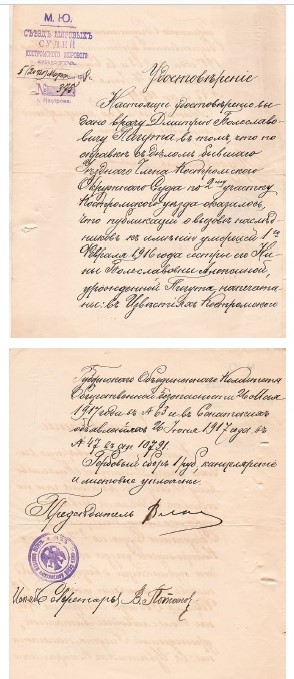 М. Ю.
СЪѢЗДЪ МИРОВЫХЪ
СУДЕЙ
КОСТРОМСКОГО МИРОВОГО
5 (20 го) Марта 8.
№ 375
г. Кострома.
Удостовѣреніе
Настоящее удостовѣреніе вы-
дано врачу Дмитрію Болеславо-
вичу Пигута въ томъ, что по
справкѣ съ дѣломъ бывшаго
Уѣзднаго Члена Костромского
Окружнаго Суда по 2му участку
Костромского уѣзда оказалось,
что публикаціи о вызовѣ наслѣд-
никовъ къ имѣнію умершей 1го
Февраля 1916 года сестры его Ни-
ны Болеславовны
урожденной Пигута, напечата-
ны: въ Извѣстіяхъ Костромского
Губернскаго Объединеннаго Комитета
Общественной Безопасности 26 Мая
1917 года въ № 63 и въ Сенатскихъ
объявленіяхъ 26 Іюня 1917 года въ
№ 47 въ ст. 18791.
Гербовый сборъ 1 руб, канцелярскія
и листовые уплочены.
Предсѣдатель
Секретарь В. Потапов